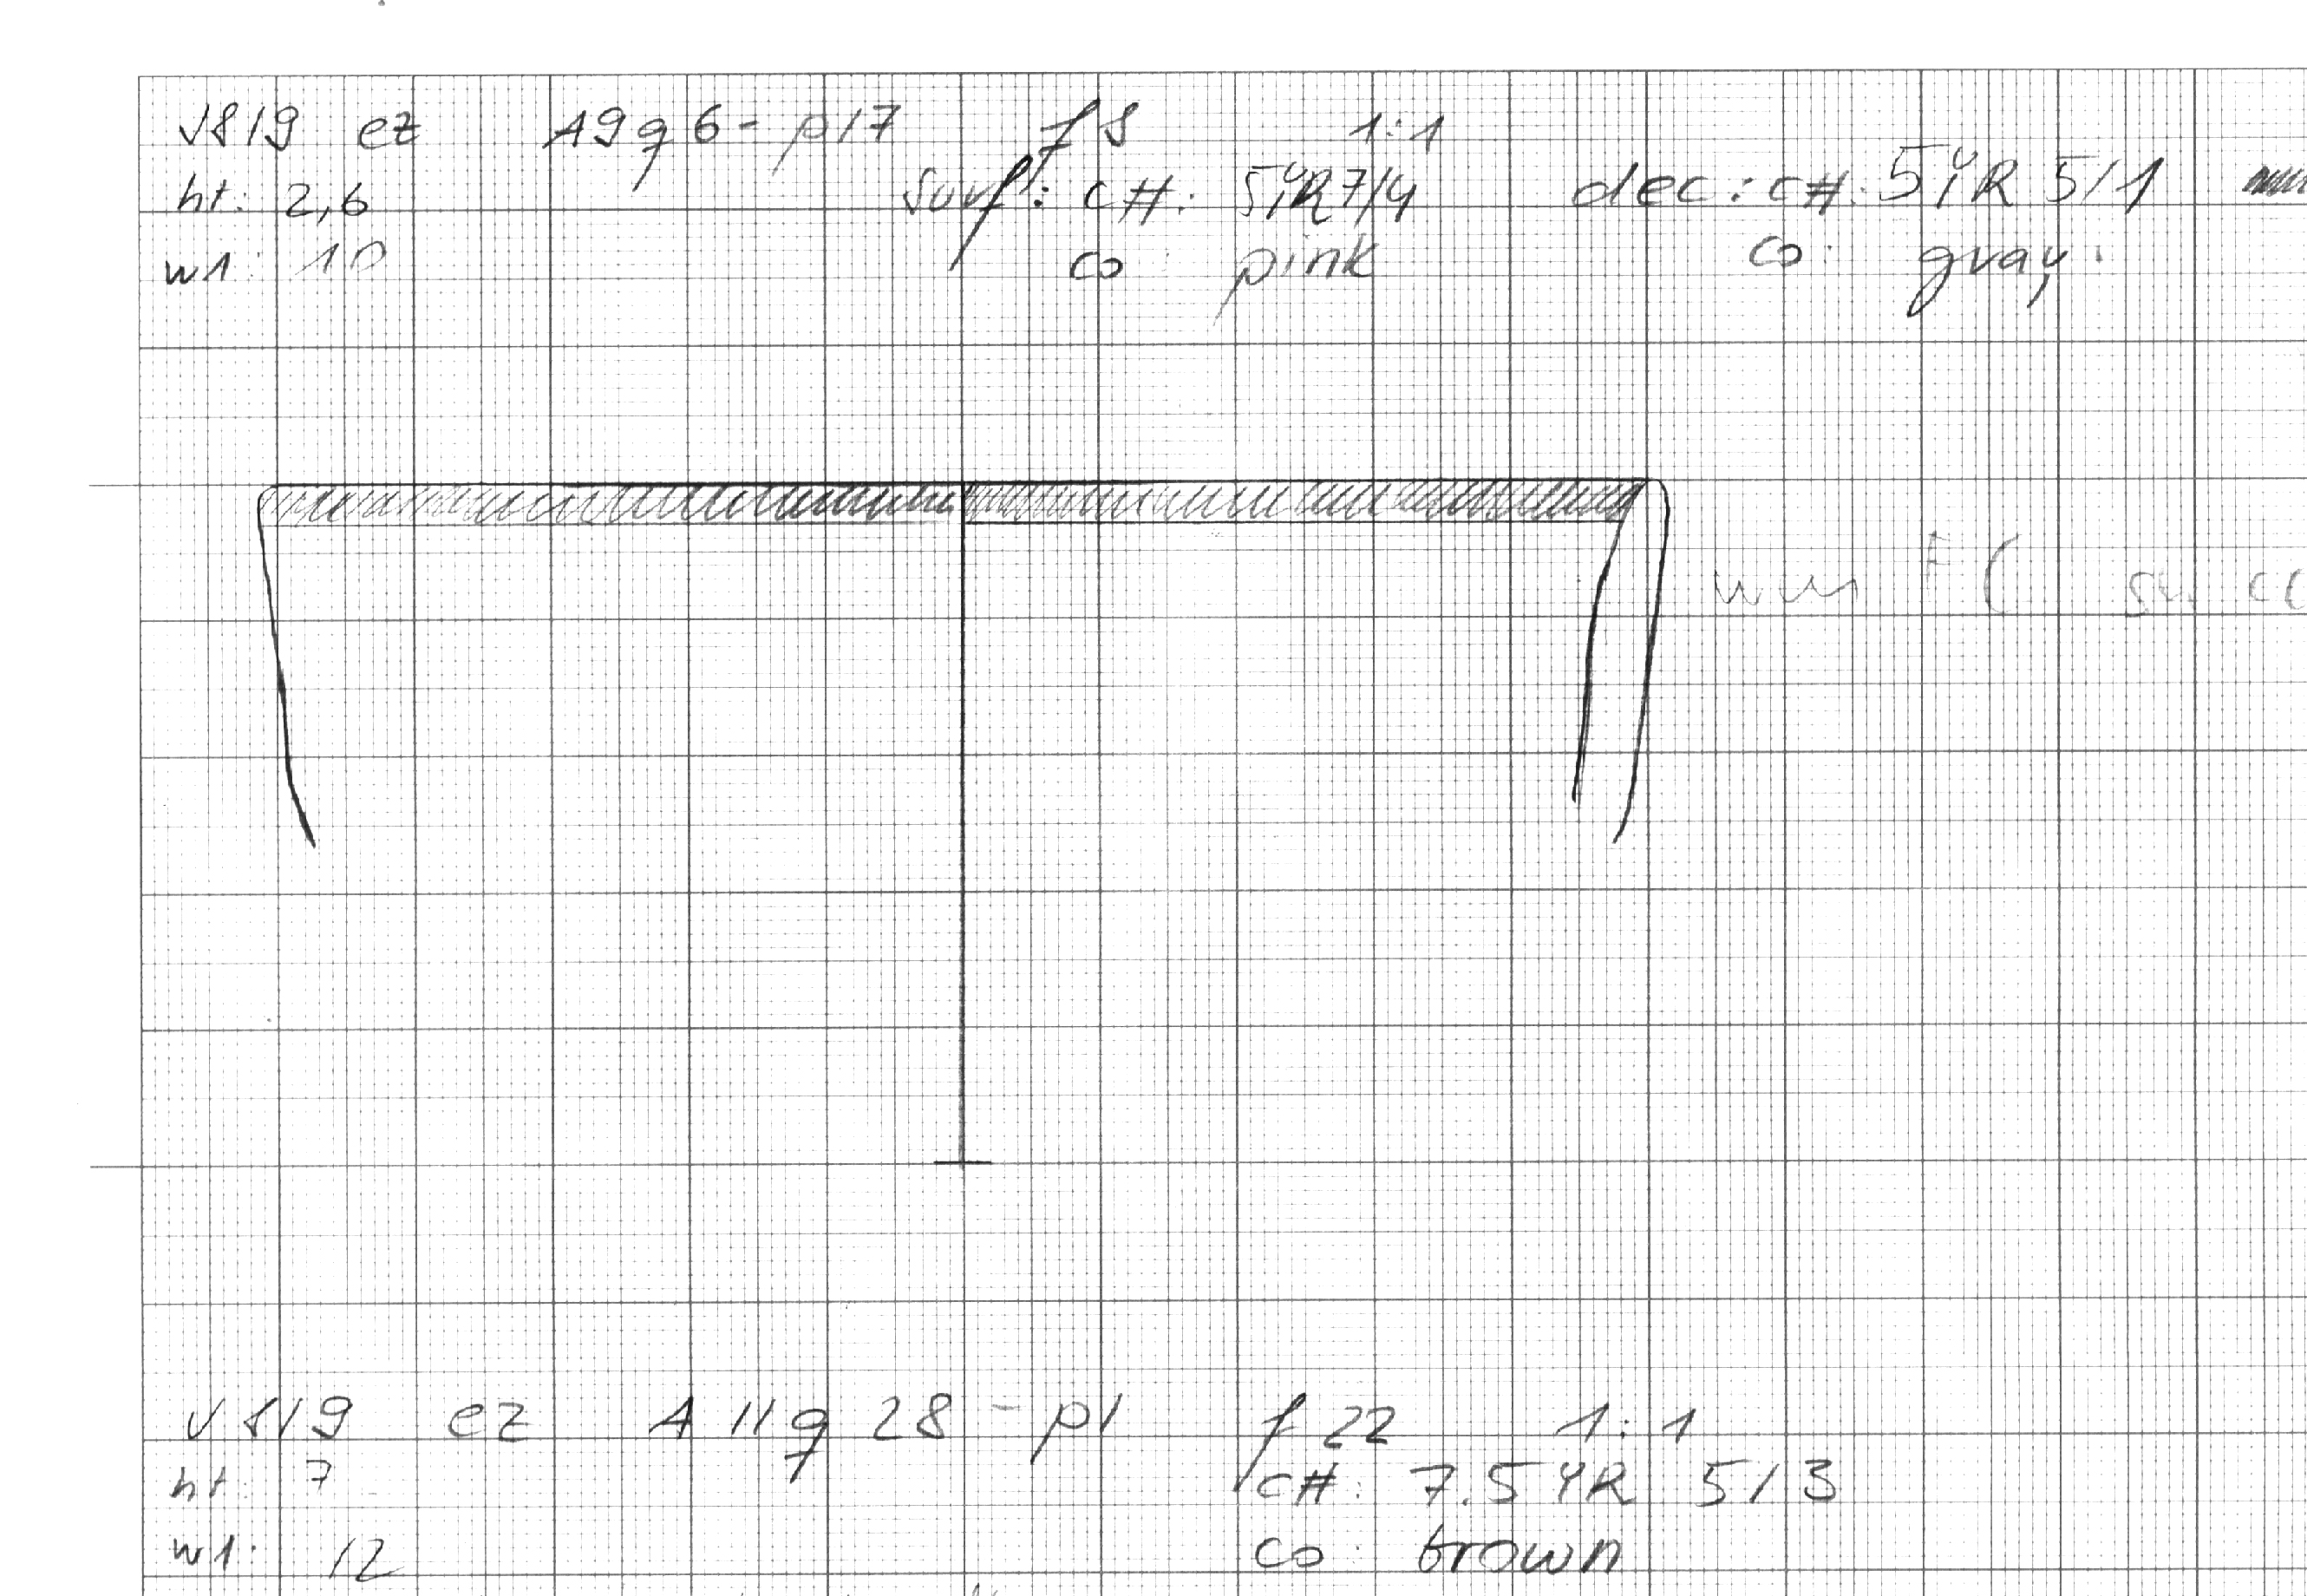 V819 ez A9q6-p17 f8 1:1
ht: 2,6 surf: c#: 5YR 7/4 dec: c#: 5YR 5/1
w1: 10 co: pink co: gray
V819 ez A11q28-p1 f22 1:1
ht: 7 c#: 7.5YR 5/3
w1: 12 co: brown